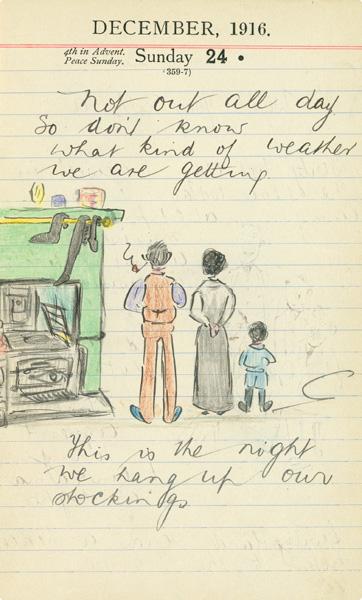 DECEMBER, 1916.
4th in Advent.
Peace Sunday.
Sunday 24 •
(359-7)
Not out all day
So don't know
what kind of weather
we are getting
This is the night
we hang up our
stockings